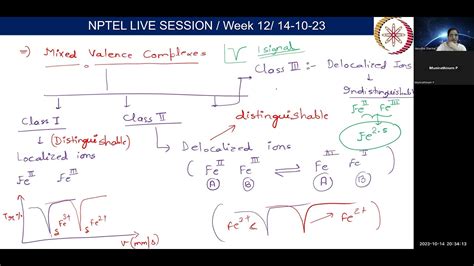 NPTEL LIVE SESSION / Week 12/ 14-10-23
⇒) Mixed Valence Complexes
1 signal
Class III :- Delocalized Ions
Indistinguishable
Fe^II Fe^III
Fe^2.5
Class I
(Distinguishable)
Localized ions
Fe^II Fe^III
Class II
distinguishable
Delocalized ions
(Fe^II Fe^III ⇌ Fe^III Fe^II)
A B A B
Tr%
Fe3+
Fe2+
s s
V (mm/s)
(Fe3+ Fe2+)
2023-10-14 20:54:13